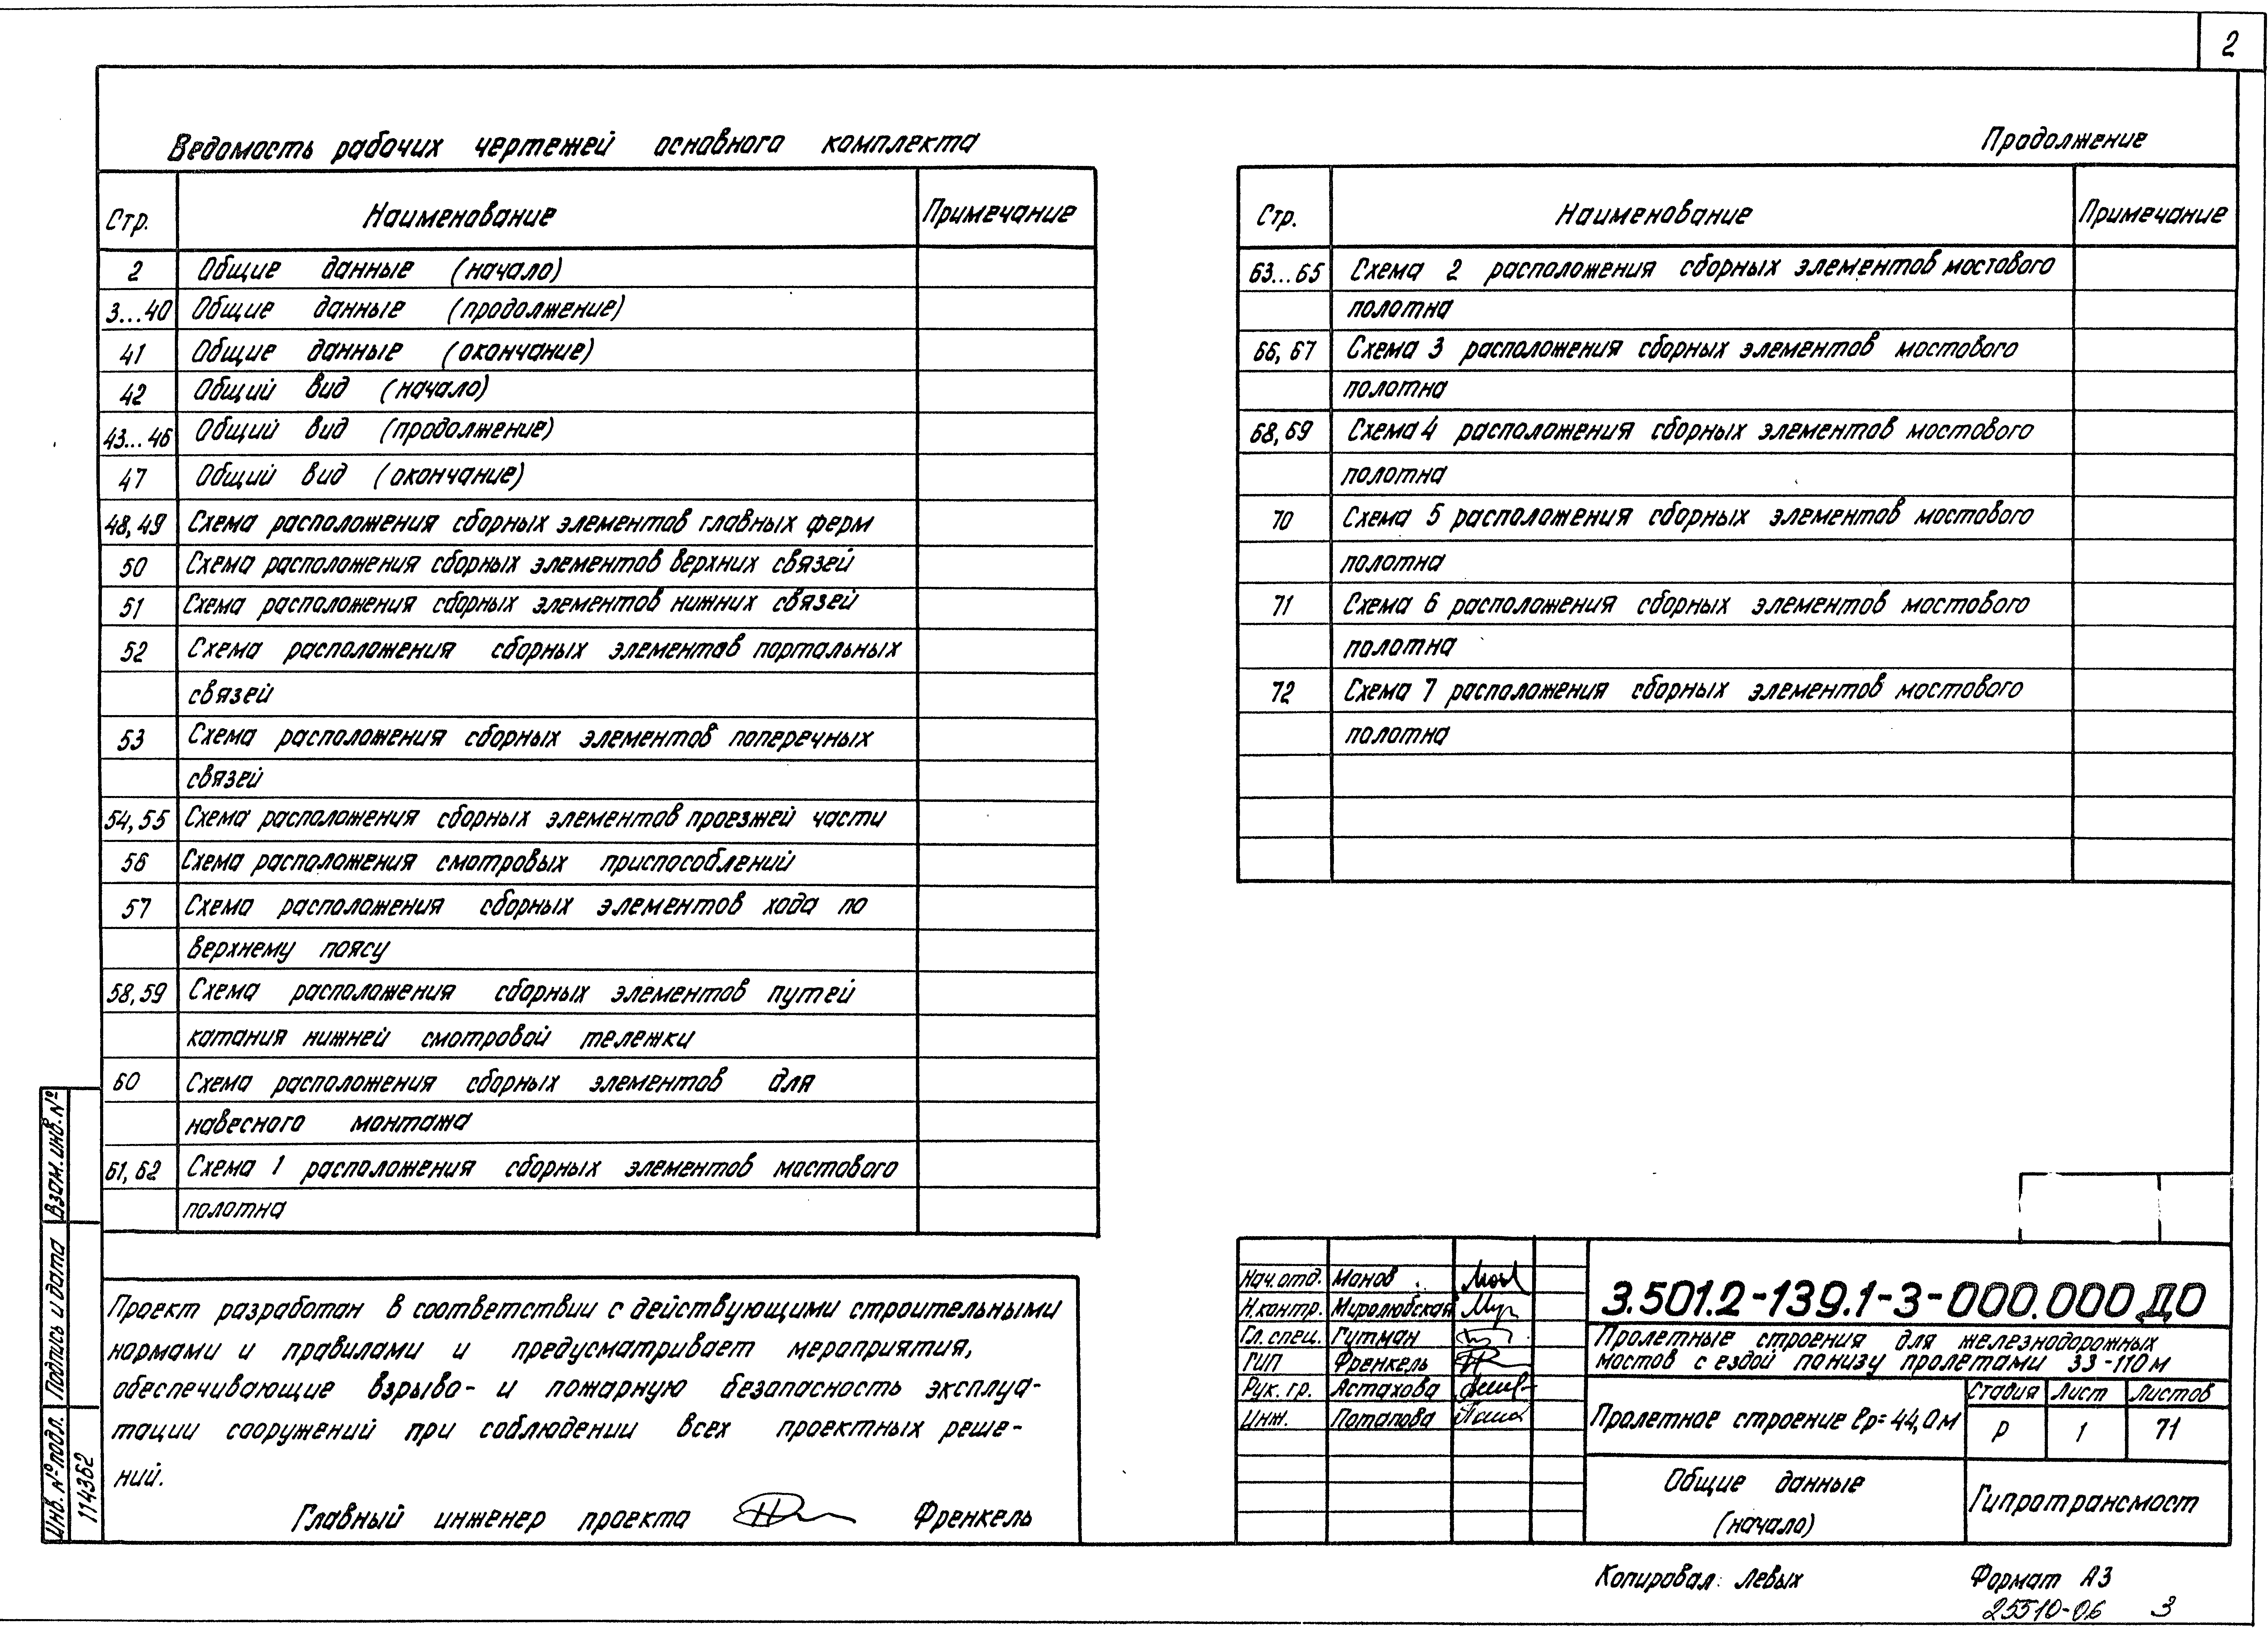 2
Ведомость рабочих чертежей основного комплекта
Стр. Наименование Примечание
2 Общие данные (начало)
3...40 Общие данные (продолжение)
41 Общие данные (окончание)
42 Общий вид (начало)
43...46 Общий вид (продолжение)
47 Общий вид (окончание)
48,49 Схема расположения сборных элементов главных ферм
50 Схема расположения сборных элементов верхних связей
51 Схема расположения сборных элементов нижних связей
52 Схема расположения сборных элементов портальных
связей
53 Схема расположения сборных элементов поперечных
связей
54,55 Схема расположения сборных элементов проезжей части
56 Схема расположения смотровых приспособлений
57 Схема расположения сборных элементов хода по
верхнему поясу
58,59 Схема расположения сборных элементов путей
катания нижней смотровой тележки
60 Схема расположения сборных элементов для
навесного монтажа
61,62 Схема 1 расположения сборных элементов мостового
полотна
Продолжение
Стр. Наименование Примечание
63...65 Схема 2 расположения сборных элементов мостового
полотна
66,67 Схема 3 расположения сборных элементов мостового
полотна
68,69 Схема 4 расположения сборных элементов мостового
полотна
70 Схема 5 расположения сборных элементов мостового
полотна
71 Схема 6 расположения сборных элементов мостового
полотна
72 Схема 7 расположения сборных элементов мостового
полотна
Проект разработан в соответствии с действующими строительными
нормами и правилами и предусматривает мероприятия,
обеспечивающие взрыво- и пожарную безопасность эксплуа-
тации сооружений при соблюдении всех проектных реше-
ний.
Главный инженер проекта Френкель
Взам. инв. №
Подпись и дата
Инв. № подл.
114362
Нач.отд. Манов
Н.контр. Миролюбская
Гл.спец. Гутман
ГИП Френкель
Рук. гр. Астахова
Инж. Потапова
3.501.2-139.1-3-000.000 ДО
Пролетные строения для железнодорожных
мостов с ездой понизу пролетами 33-110 м
Пролетное строение lр=44,0м
Стадия Лист Листов
Р 1 71
Общие данные
(начало)
Гипротрансмост
Копировал: Левых
Формат А3
25510-06 3